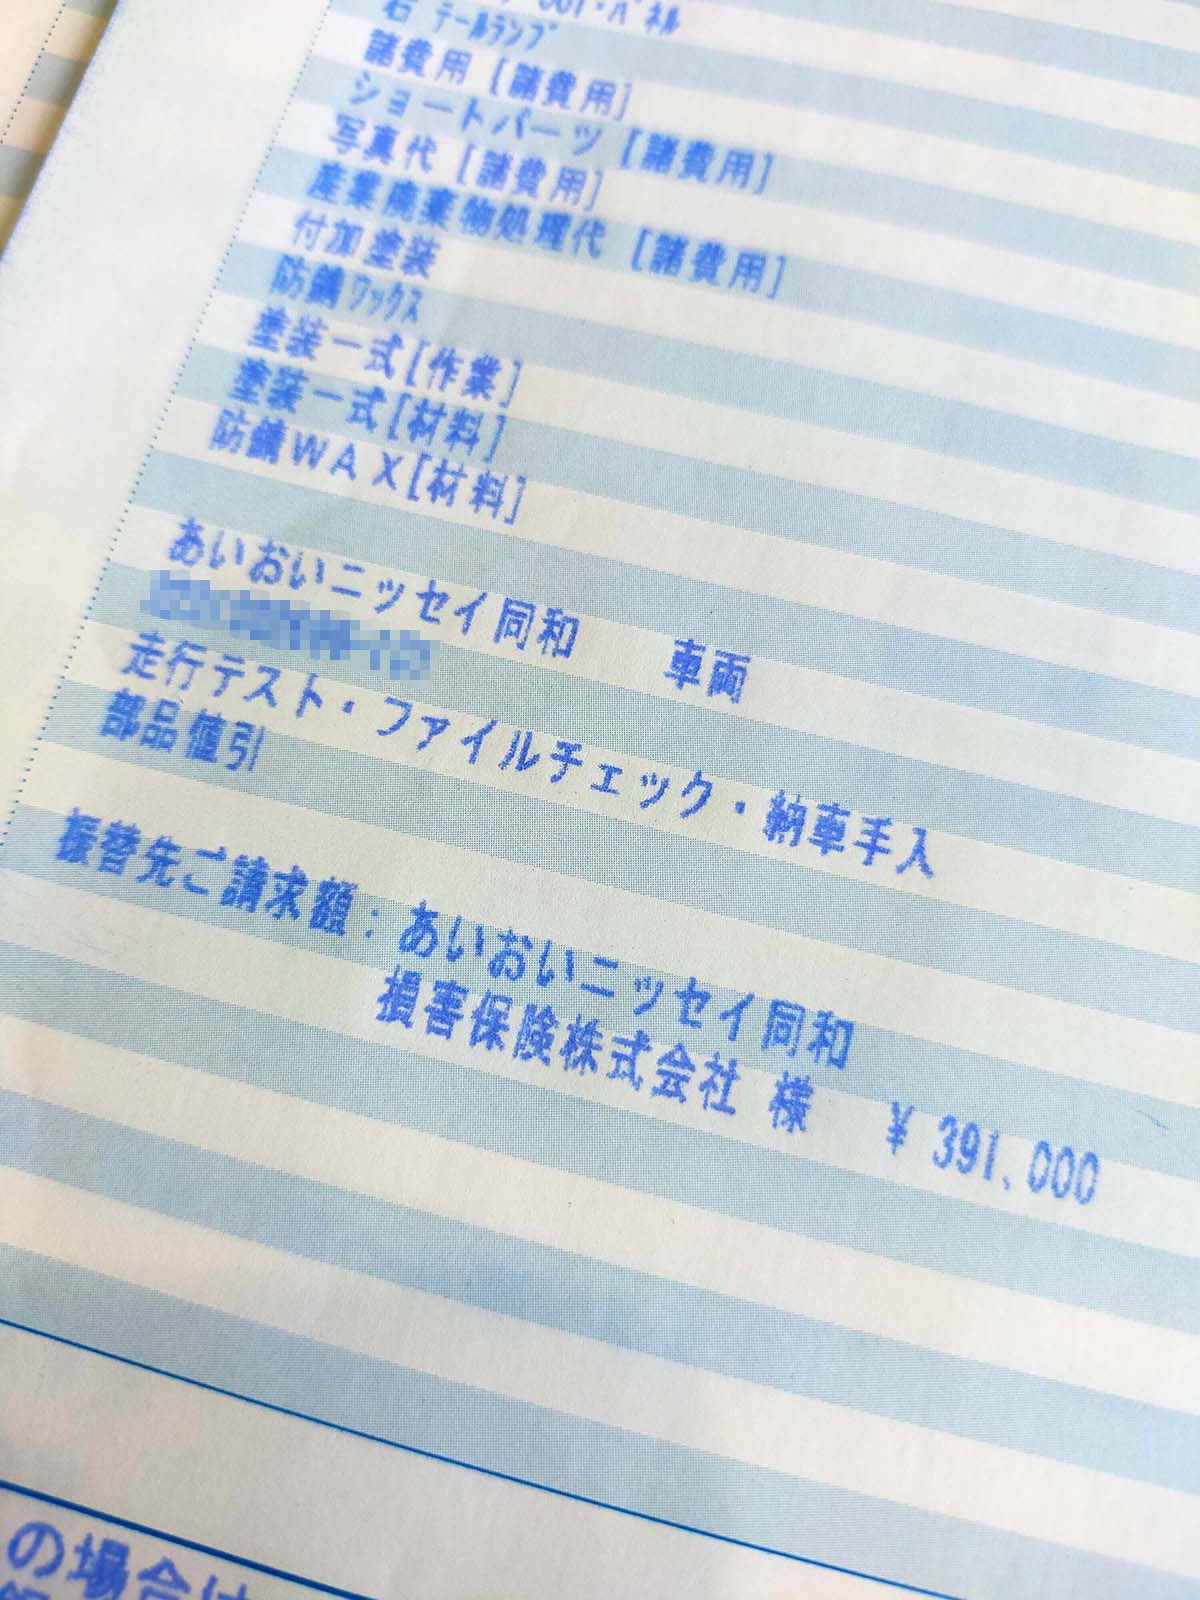 右 テールランプ
諸費用 [諸費用]
ショートパーツ [諸費用]
写真代 [諸費用]
産業廃棄物処理代 [諸費用]
付加塗装
防錆ワックス
塗装一式[作業]
塗装一式[材料]
防錆WAX[材料]
あいおいニッセイ同和 車両
走行テスト・ファイルチェック・納車手入
部品値引
振替先ご請求額:あいおいニッセイ同和
損害保険株式会社 様 ¥ 391,000
の場合は